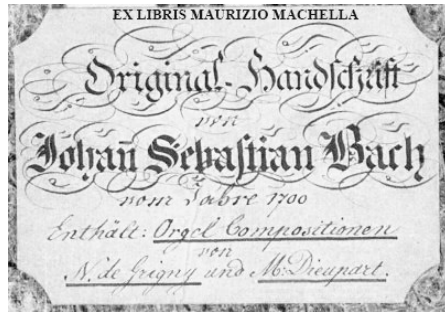 EX LIBRIS MAURIZIO MACHELLA
Original-Handschrift
von
Johan̅ Sebastian Bach
vom Jahre 1700
Enthält: Orgel Compositionen
von
N. de Grigny und M. Dieupart.